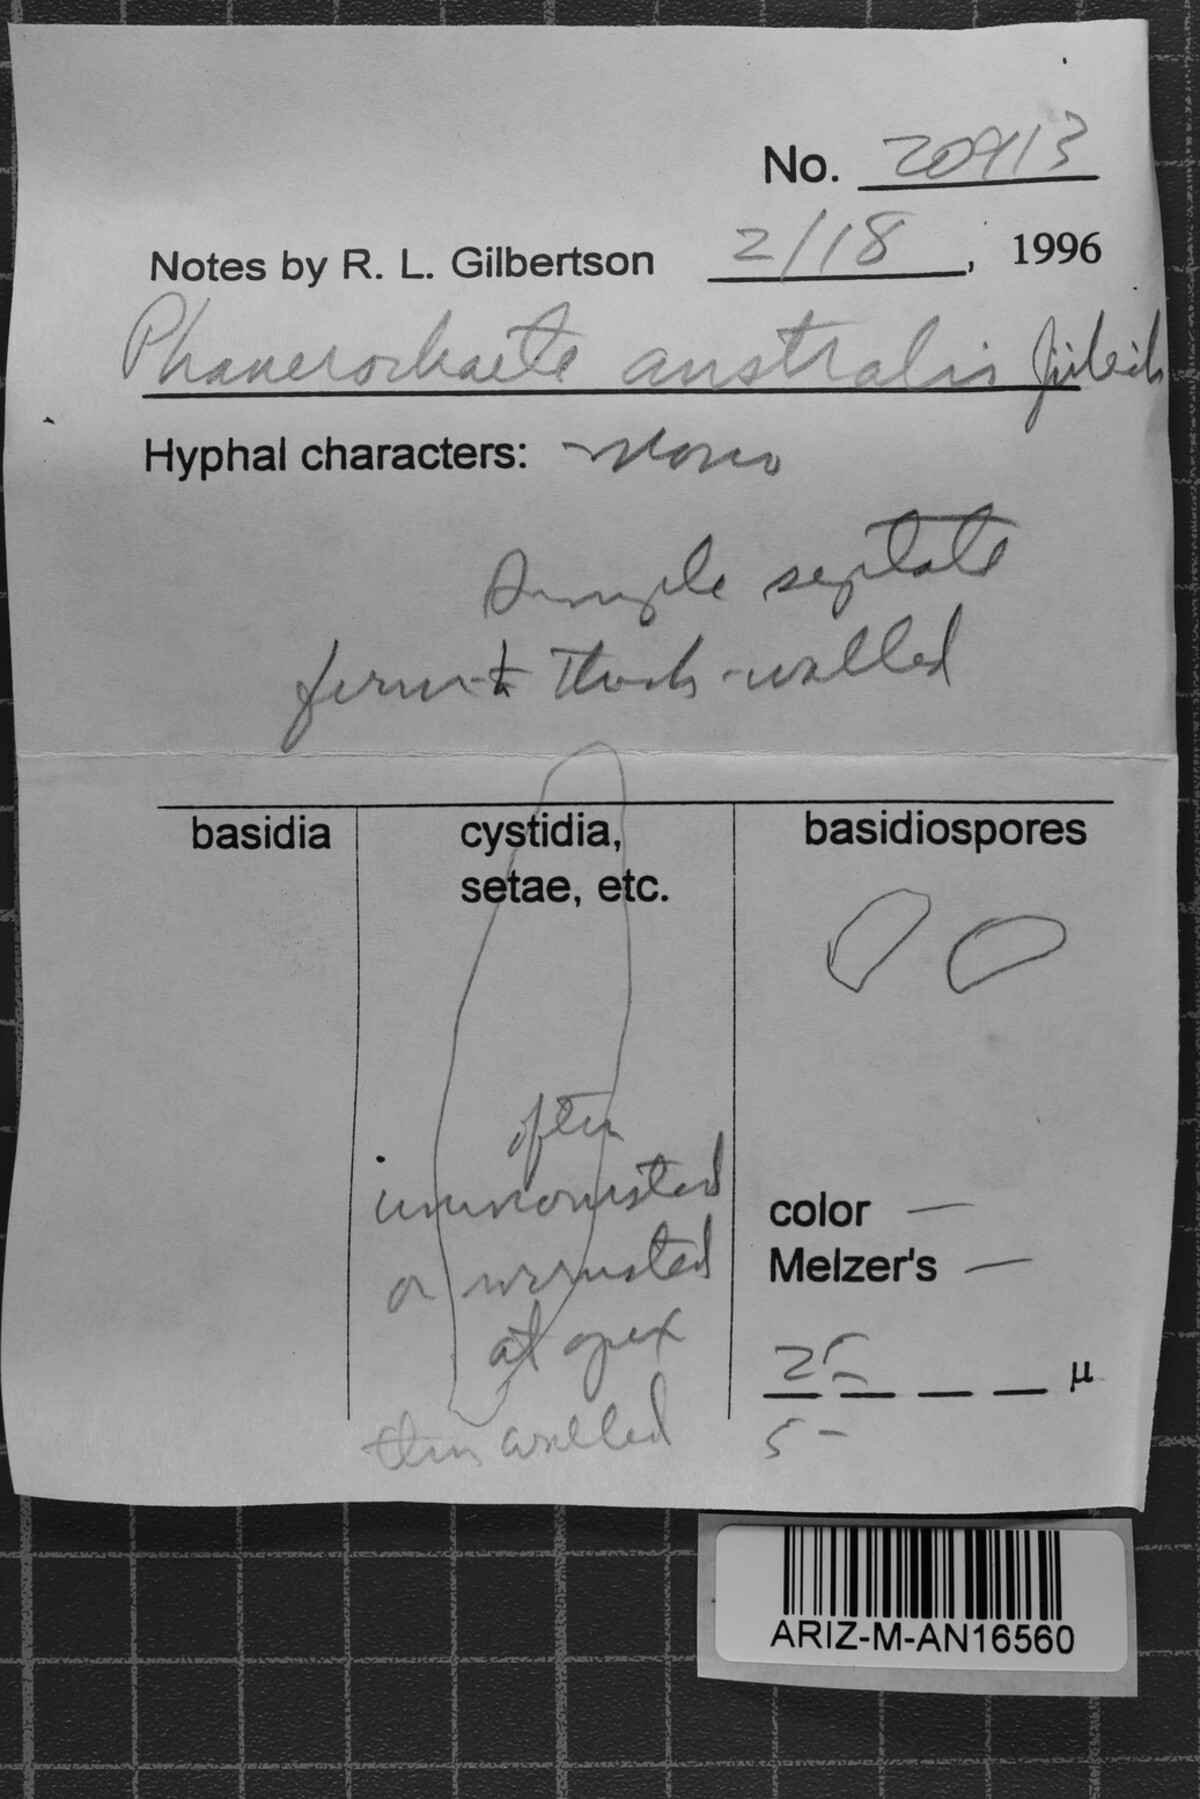 No. 20913
Notes by R. L. Gilbertson 2/18, 1996
Phanerochaete australis Jülich
Hyphal characters: mono
Simple septate
firm thick-walled
basidia
cystidia,
setae, etc.
basidiospores
often
unencrusted
or encrusted
at apex
thin walled
color —
Melzer's —
μ
5 -
ARIZ-M-AN16560